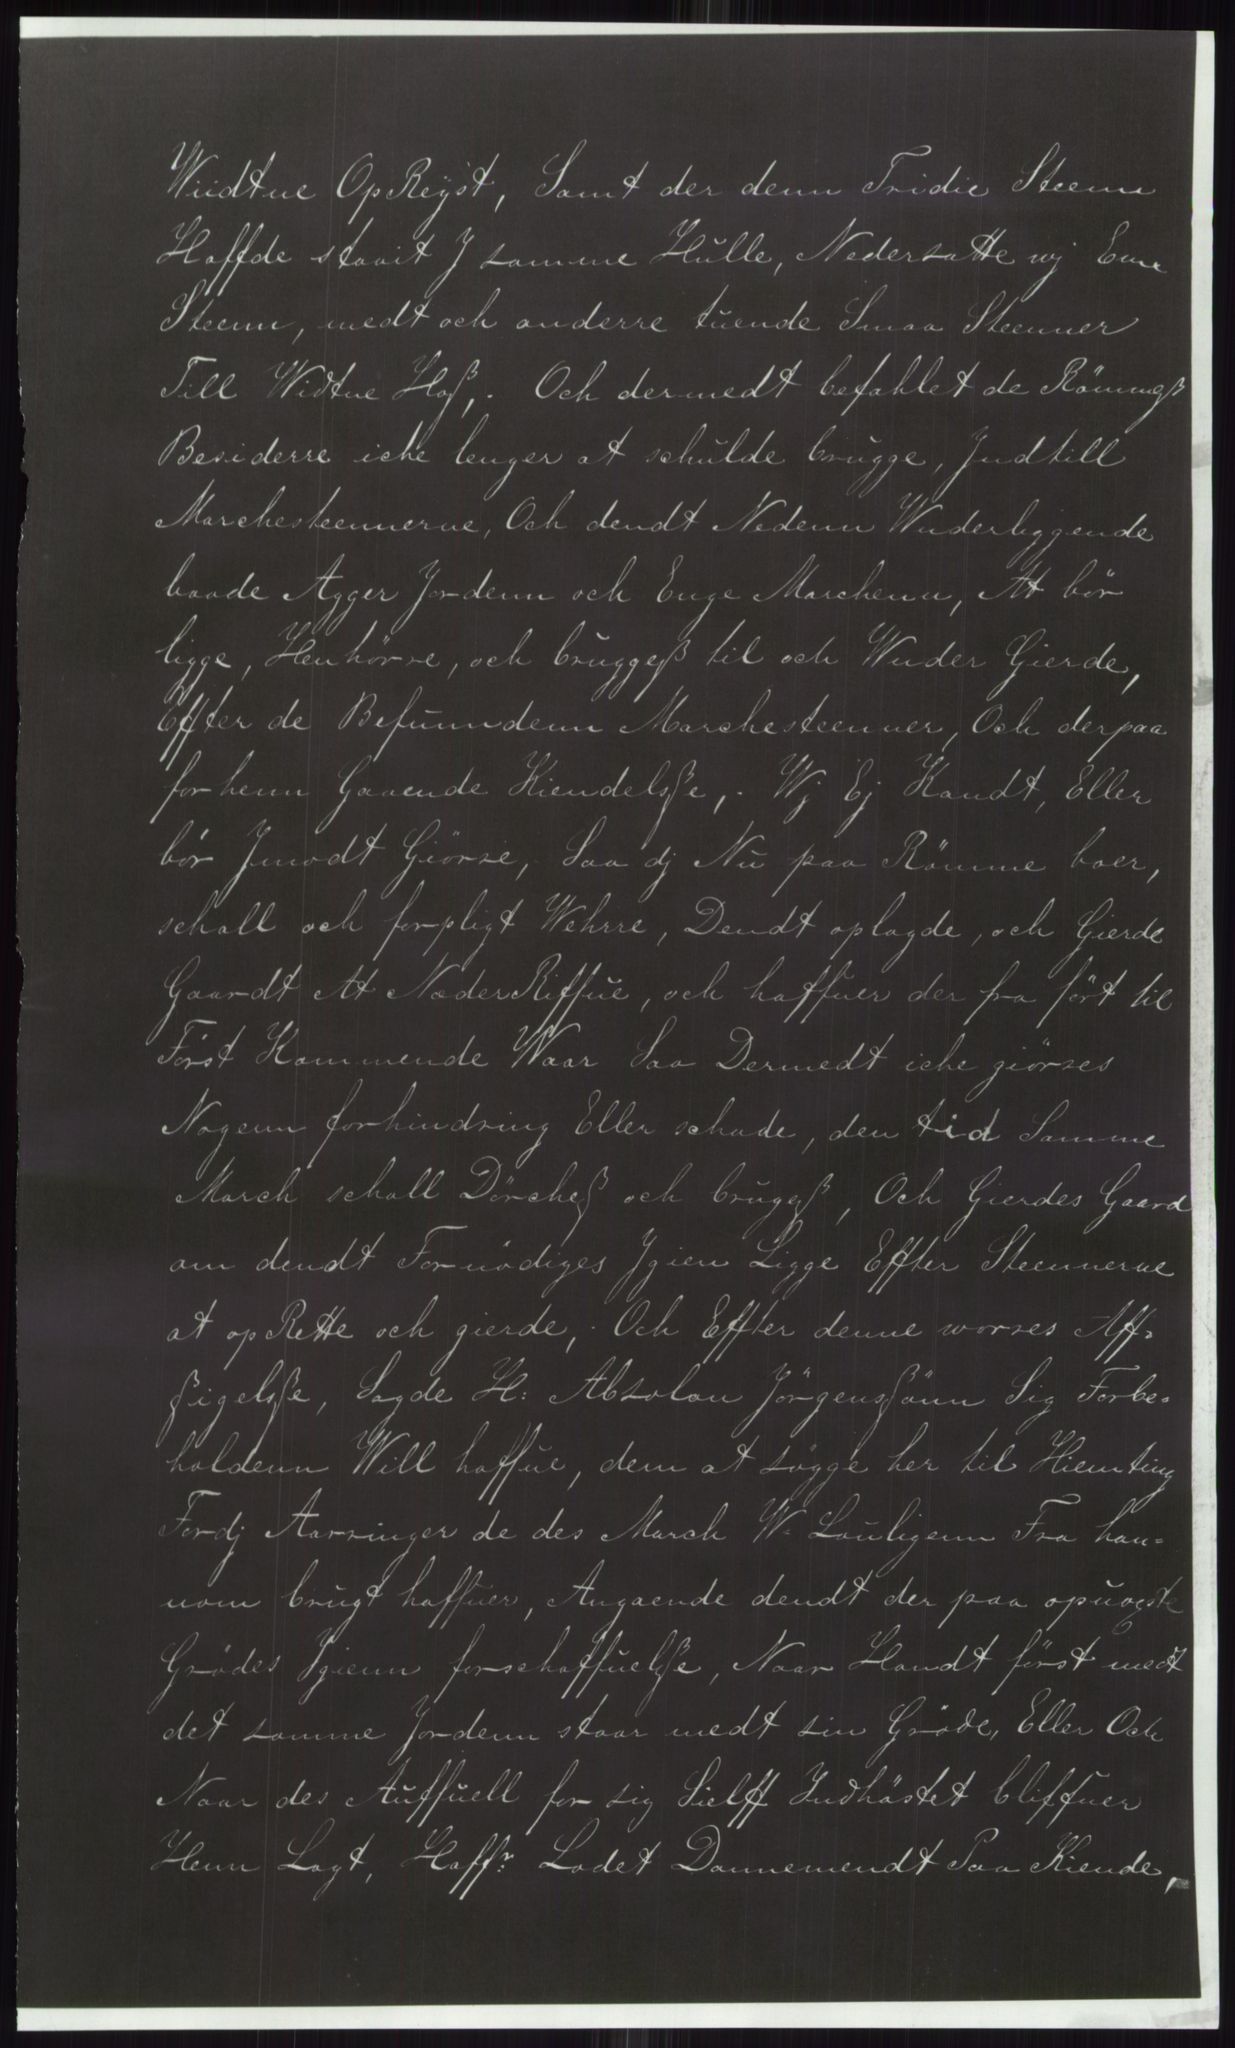 Wiidtne OpReÿst, Samt der denn Tridie Steenn
Haffde staait J samme Hulle, Nedersatte wj Enn
Steenn, medt och anderre tuende Smaa Steenner
Till Widtne Hoß,. Och dermedt befahlet de Römmeß
Besiderre iche lenger at schulde brugge, Indtill
Marchesteennerne, Och dendt Nedenn Wnderliggende
baade Agger Jordenn och Enge Marchenn, At bör
ligge, Henhörre, och bruggeß til och Wnder Gierde,
Effter de Befunndenn Marchesteenner, Och derpaa
forhenn Gaaende Kiendelsße,. Wj Ej Kandt, Eller
bör Jmodt Giörre, Saa dj Nu paa Römme boer,
schall och forpligt Wehrre, Dendt oplagde, och Gierde
Gaardt At NederRiffue, och haffuer der fra fört til
Först Kommende Waar Saa Dermedt iche giörres
Nogenn forhindring Eller schade, den tid Samme
March schall Dörcheß och brugeß, Och Gierdes Gaard
om dendt Fornödiges Jgien Ligge Effter Steennerne
at opRette och gierde,. Och Effter denne worres Aff-
ßigelsße, Sagde H: Absolon Jörgensßönn Sig Forbe-
holdenn Will haffue, dem at sögge her til Hiemting
Fordj Aarringer de des March W- Louligenn Fra han-
nom brugt haffuer, Angaende dendt der paa opuogste
Grödes Jgienn forschaffuelsße, Naar Handt först medt
det samme Jordenn staar medt sin Gröde, Eller Och
Naar des Auffuell for sig Sielff Indhöstet bliffuer
Henn Lagt, Haffr Ladet Dannemendt Paa Kiende,